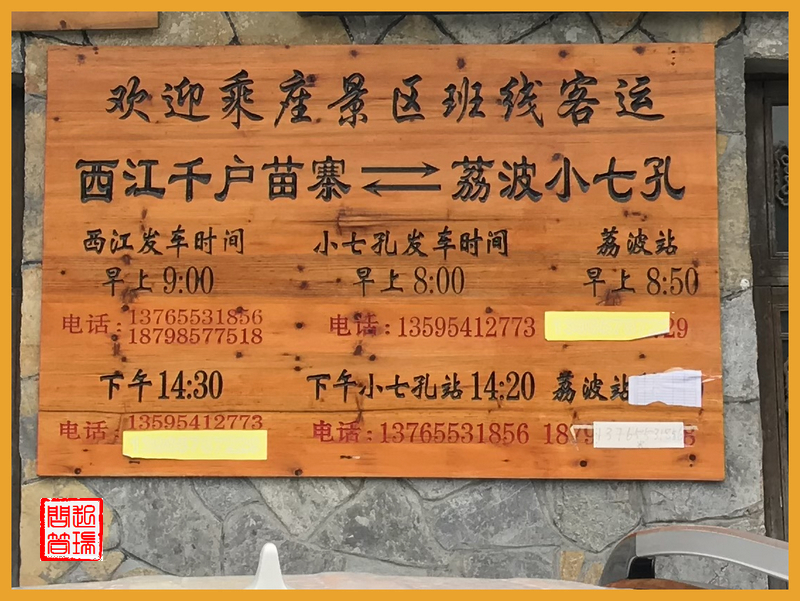 欢迎乘座景区班线客运
西江千户苗寨 荔波小七孔
西江发车时间 小七孔发车时间 荔波站
早上9:00 早上8:00 早上8:50
电话:13765531856 电话:13595412773
18798577518
下午14:30 下午小七孔站14:20 荔波站
电话:13595412773 电话:13765531856